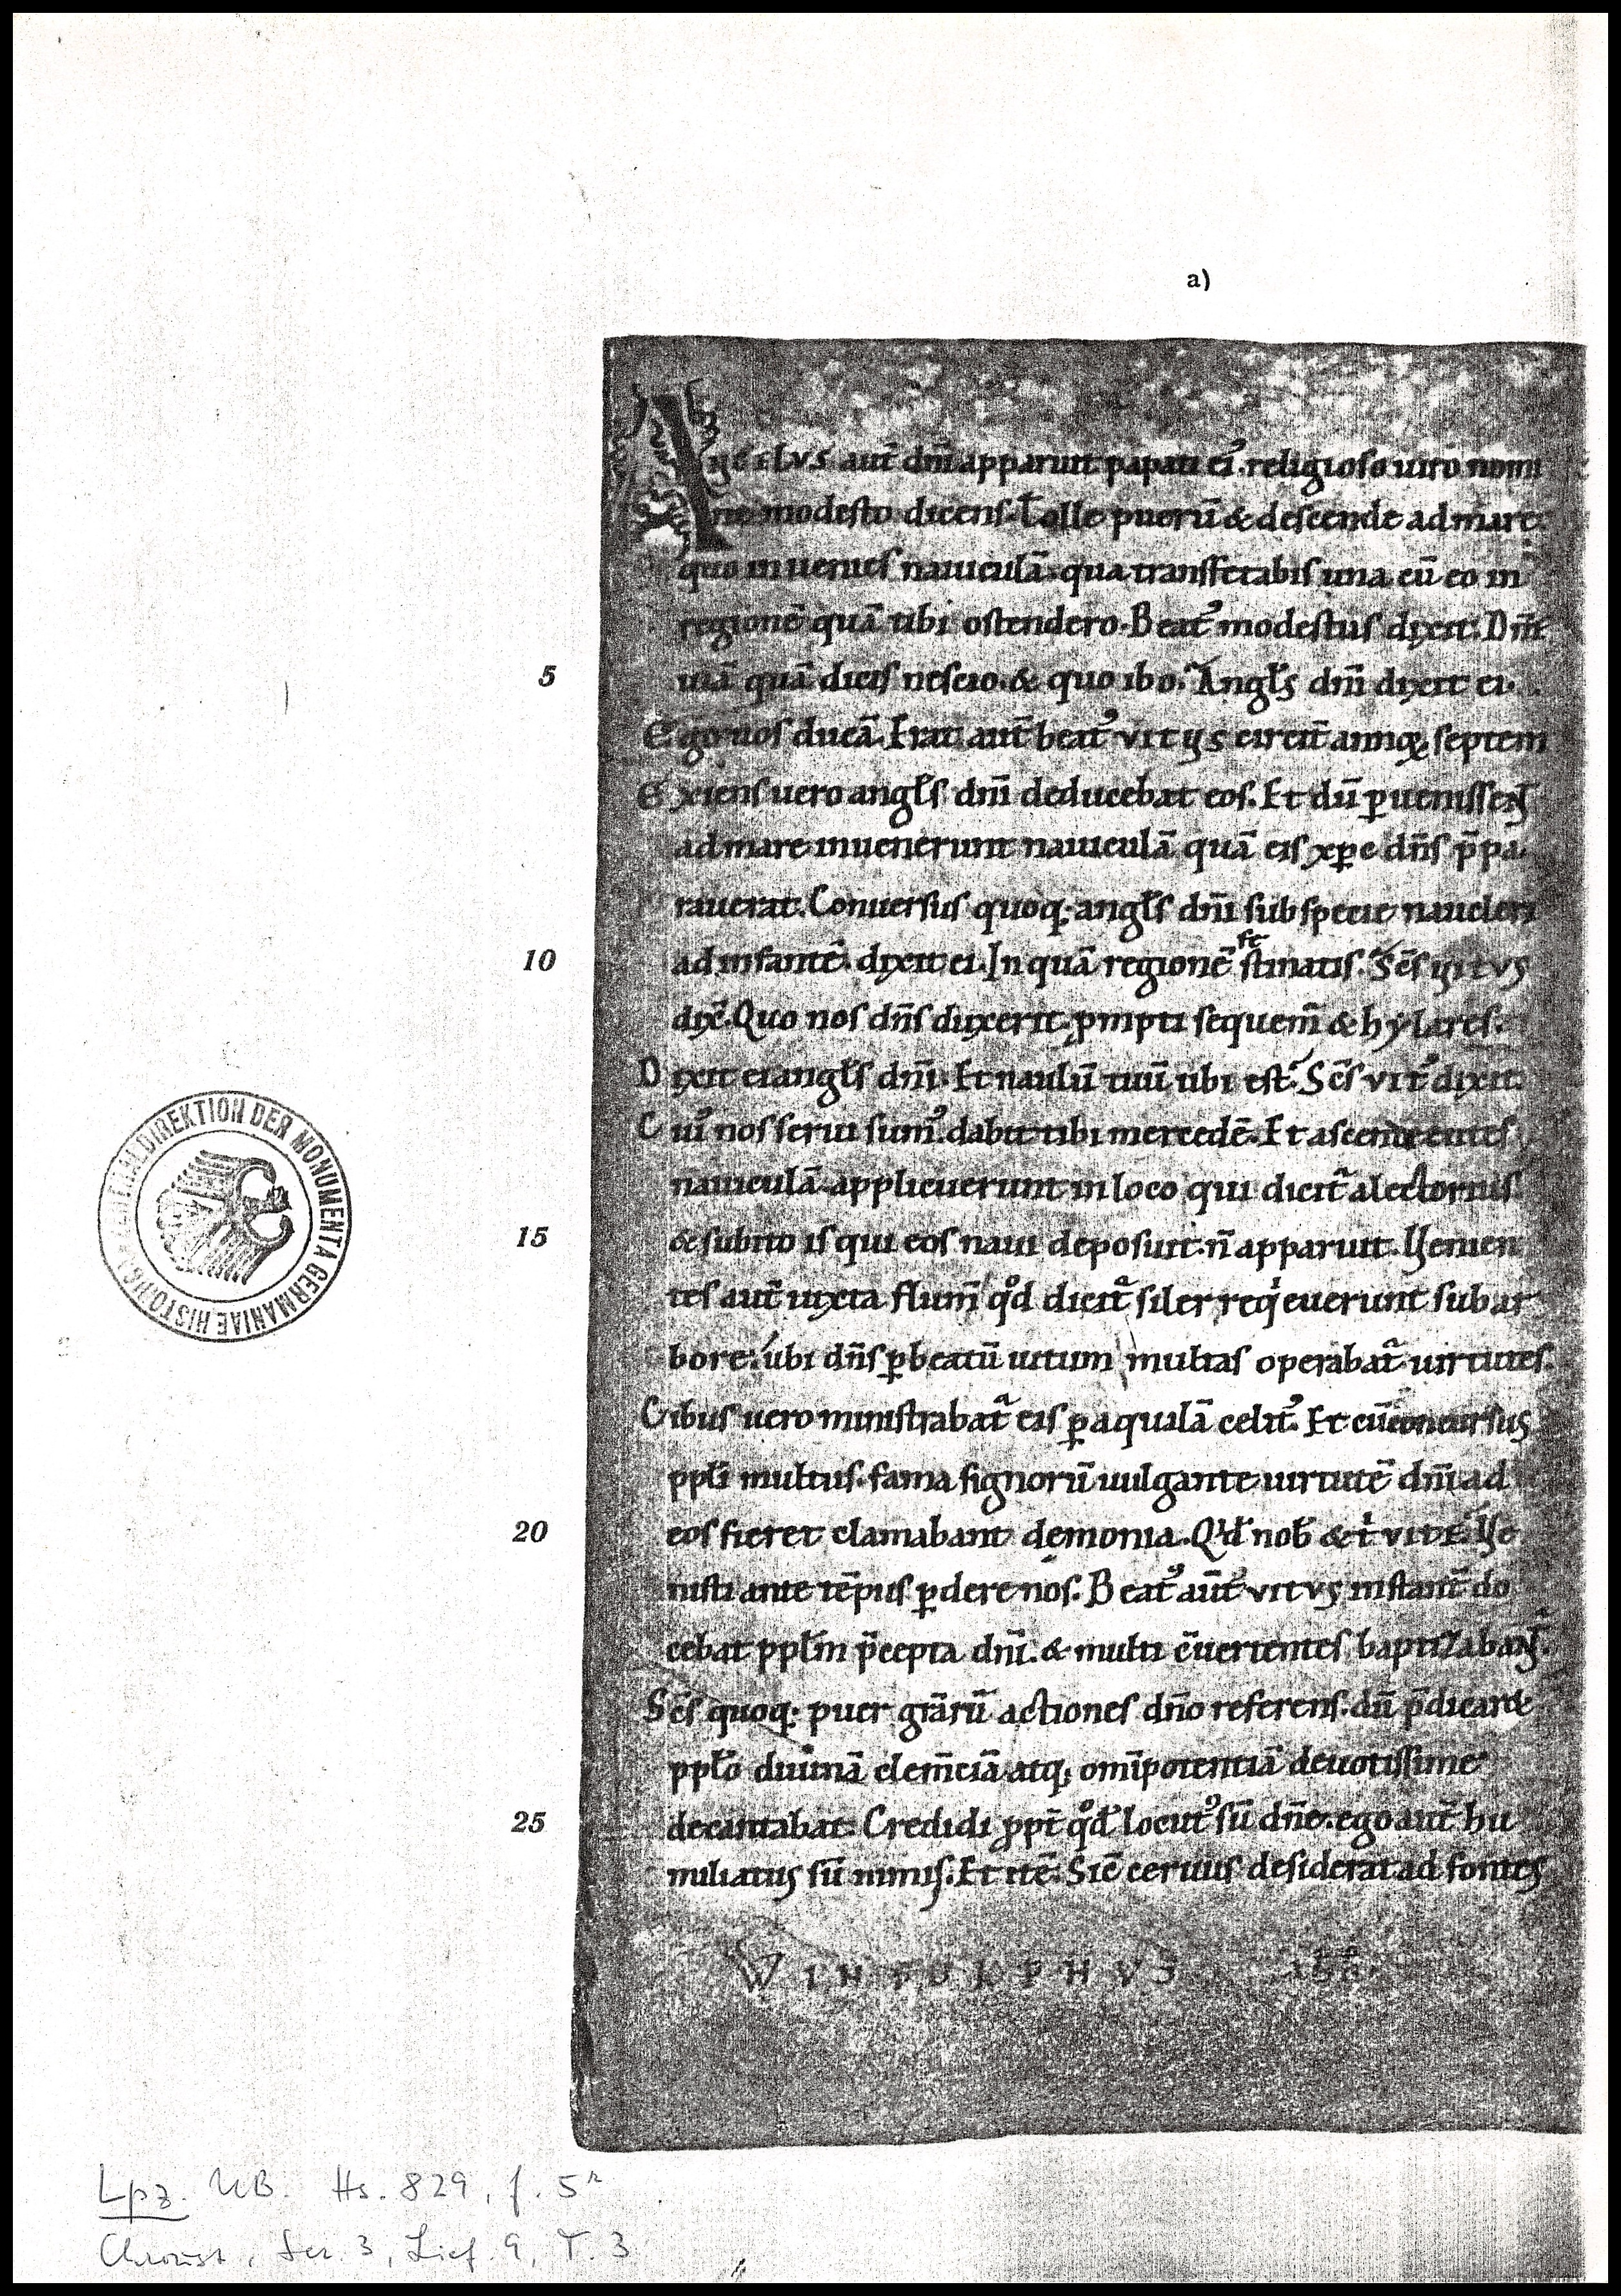 a)
Angelvs aut̄ dn̄i apparuit papati eiꝰ. religioso uiro nomi
ne modesto dicens. Tolle puerū & descende ad mare
quo inuenies nauiculā. qua transfretabis una cū eo in
regionē quā tibi ostendero. Beatꝰ modestus dixit. Dn̄e
5 uiā quā dicis nescio. & quo ibo. Angl̄s dn̄i dixit ei.
Ego uos ducā. Erat aut̄ beatꝰ vitus circit̄ annoꝝ septem
Exiens uero angl̄s dn̄i deducebat eos. Et dū ꝑuenissent
ad mare inuenerunt nauiculā quā eis xp̄c dn̄s p̄pa
rauerat. Conuersus quoq; angl̄s dn̄i sub specie naucleri
10 ad infantē. dixit ei. In quā regionē festinatis. Sc̄s vitvs
dix̄. Quo nos dn̄s duxerit. ꝓmpti sequem̄ & hylares.
Dixit ei angl̄s dn̄i. Et naulū tuū ubi est. Sc̄s vitꝰ dixit.
Cuiꝰ nos serui sumꝰ. dabit tibi mercedē. Et ascendentes
nauiculā. applicuerunt in loco qui dicit̄ alectorius
15 & subito is qui eos naui deposuit. n̄ apparuit. Uenien
tes aut̄ iuxta flum̄ qd̊ dicit̄ siler reqͥeuerunt sub ar
bore. ubi dn̄s ꝑ beatū uitum multas operabat̄ uirtutes.
Cibus uero ministrabat̄ eis ꝑ aquilā celitꝰ. Et cū concursus
ppl̄i multus. fama signorū uulgante uirtutē dn̄i ad
20 eos fieret clamabant demonia. Qͥd nob̄ & tͥ vite. Ue
nisti ante tēpus ꝑdere nos. Beatꝰ aut̄ vitvs instant̄ do
cebat ppl̄m p̄cepta dn̄i. & multi c̄uertentes baptizabant̄.
Sc̄s quoq; puer gr̄arū actiones dn̄o referens. dū p̄dicaret
ppl̄o diuinā clem̄ciā atq; om̄ipotentiā deuotissime
25 decantabat. Credidi ꝓpt̄ qd̊ locutꝰ sū dn̄e. ego aut̄ hu
miliatus sū nimis. Et itē. Sic̄ ceruus desiderat ad fontes
ZENTRALDIREKTION DER MONUMENTA GERMANIAE HISTORICA
Lpz. UB. Hs. 829, f. 5r
Chroust, Ser. 3, Lief. 9, T. 3